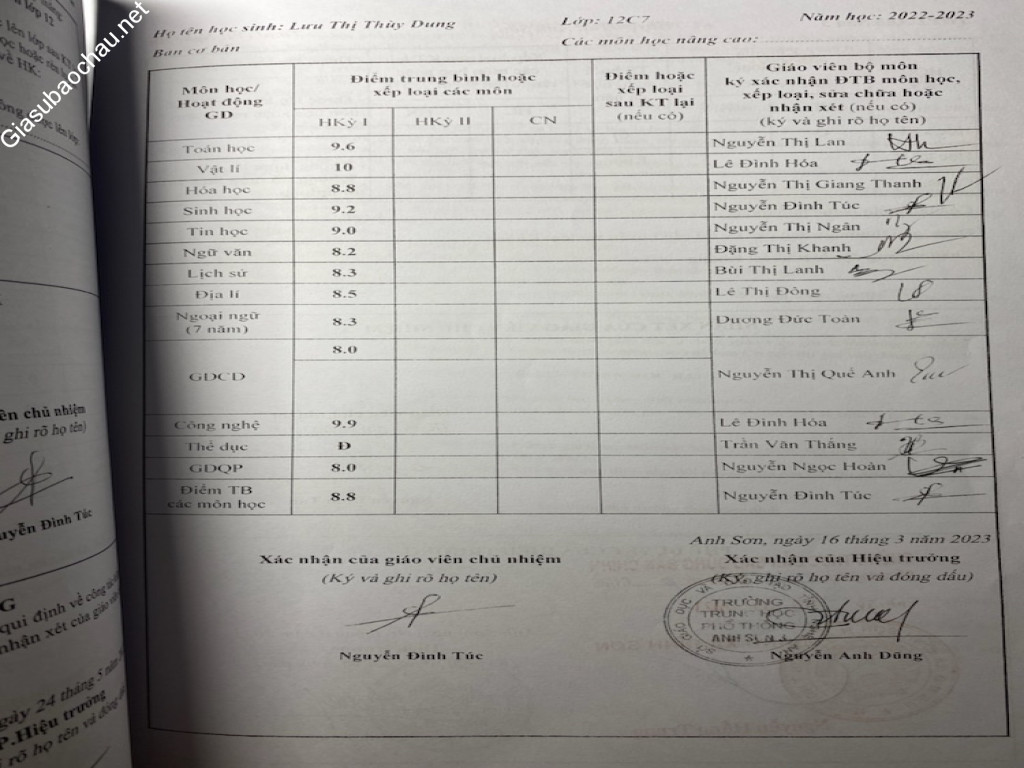 Giasubaochau.net
Họ tên học sinh: Lưu Thị Thùy Dung Lớp: 12C7 Năm học: 2022-2023
Ban cơ bản Các môn học nâng cao:
Môn học/ Hoạt động GD
Điểm trung bình hoặc xếp loại các môn
HKỳ I HKỳ II CN
Điểm hoặc xếp loại sau KT lại (nếu có)
Giáo viên bộ môn
ký xác nhận ĐTB môn học,
xếp loại, sửa chữa hoặc
nhận xét (nếu có)
(ký và ghi rõ họ tên)
Toán học 9.6 Nguyễn Thị Lan
Vật lí 10 Lê Đình Hóa
Hóa học 8.8 Nguyễn Thị Giang Thanh
Sinh học 9.2 Nguyễn Đình Túc
Tin học 9.0 Nguyễn Thị Ngân
Ngữ văn 8.2 Đặng Thị Khanh
Lịch sử 8.3 Bùi Thị Lanh
Địa lí 8.5 Lê Thị Đông
Ngoại ngữ
(7 năm) 8.3 Dương Đức Toàn
8.0
GDCD Nguyễn Thị Quế Anh
Công nghệ 9.9 Lê Đình Hóa
Thể dục Đ Trần Văn Thắng
GDQP 8.0 Nguyễn Ngọc Hoàn
Điểm TB
các môn học 8.8 Nguyễn Đình Túc
Anh Sơn, ngày 16 tháng 3 năm 2023
Xác nhận của giáo viên chủ nhiệm
(Ký và ghi rõ họ tên)
Nguyễn Đình Túc
Xác nhận của Hiệu trưởng
(Ký, ghi rõ họ tên và đóng dấu)
TRƯỜNG
TRUNG HỌC
PHỔ THÔNG
ANH SƠN
Nguyễn Anh Dũng
ên chủ nhiệm
ghi rõ họ tên)
uyễn Đình Túc
G
qui định về công
nhận xét của giáo viên
gày 24 tháng 5 năm
P.Hiệu trưởng
rõ họ tên và đóng